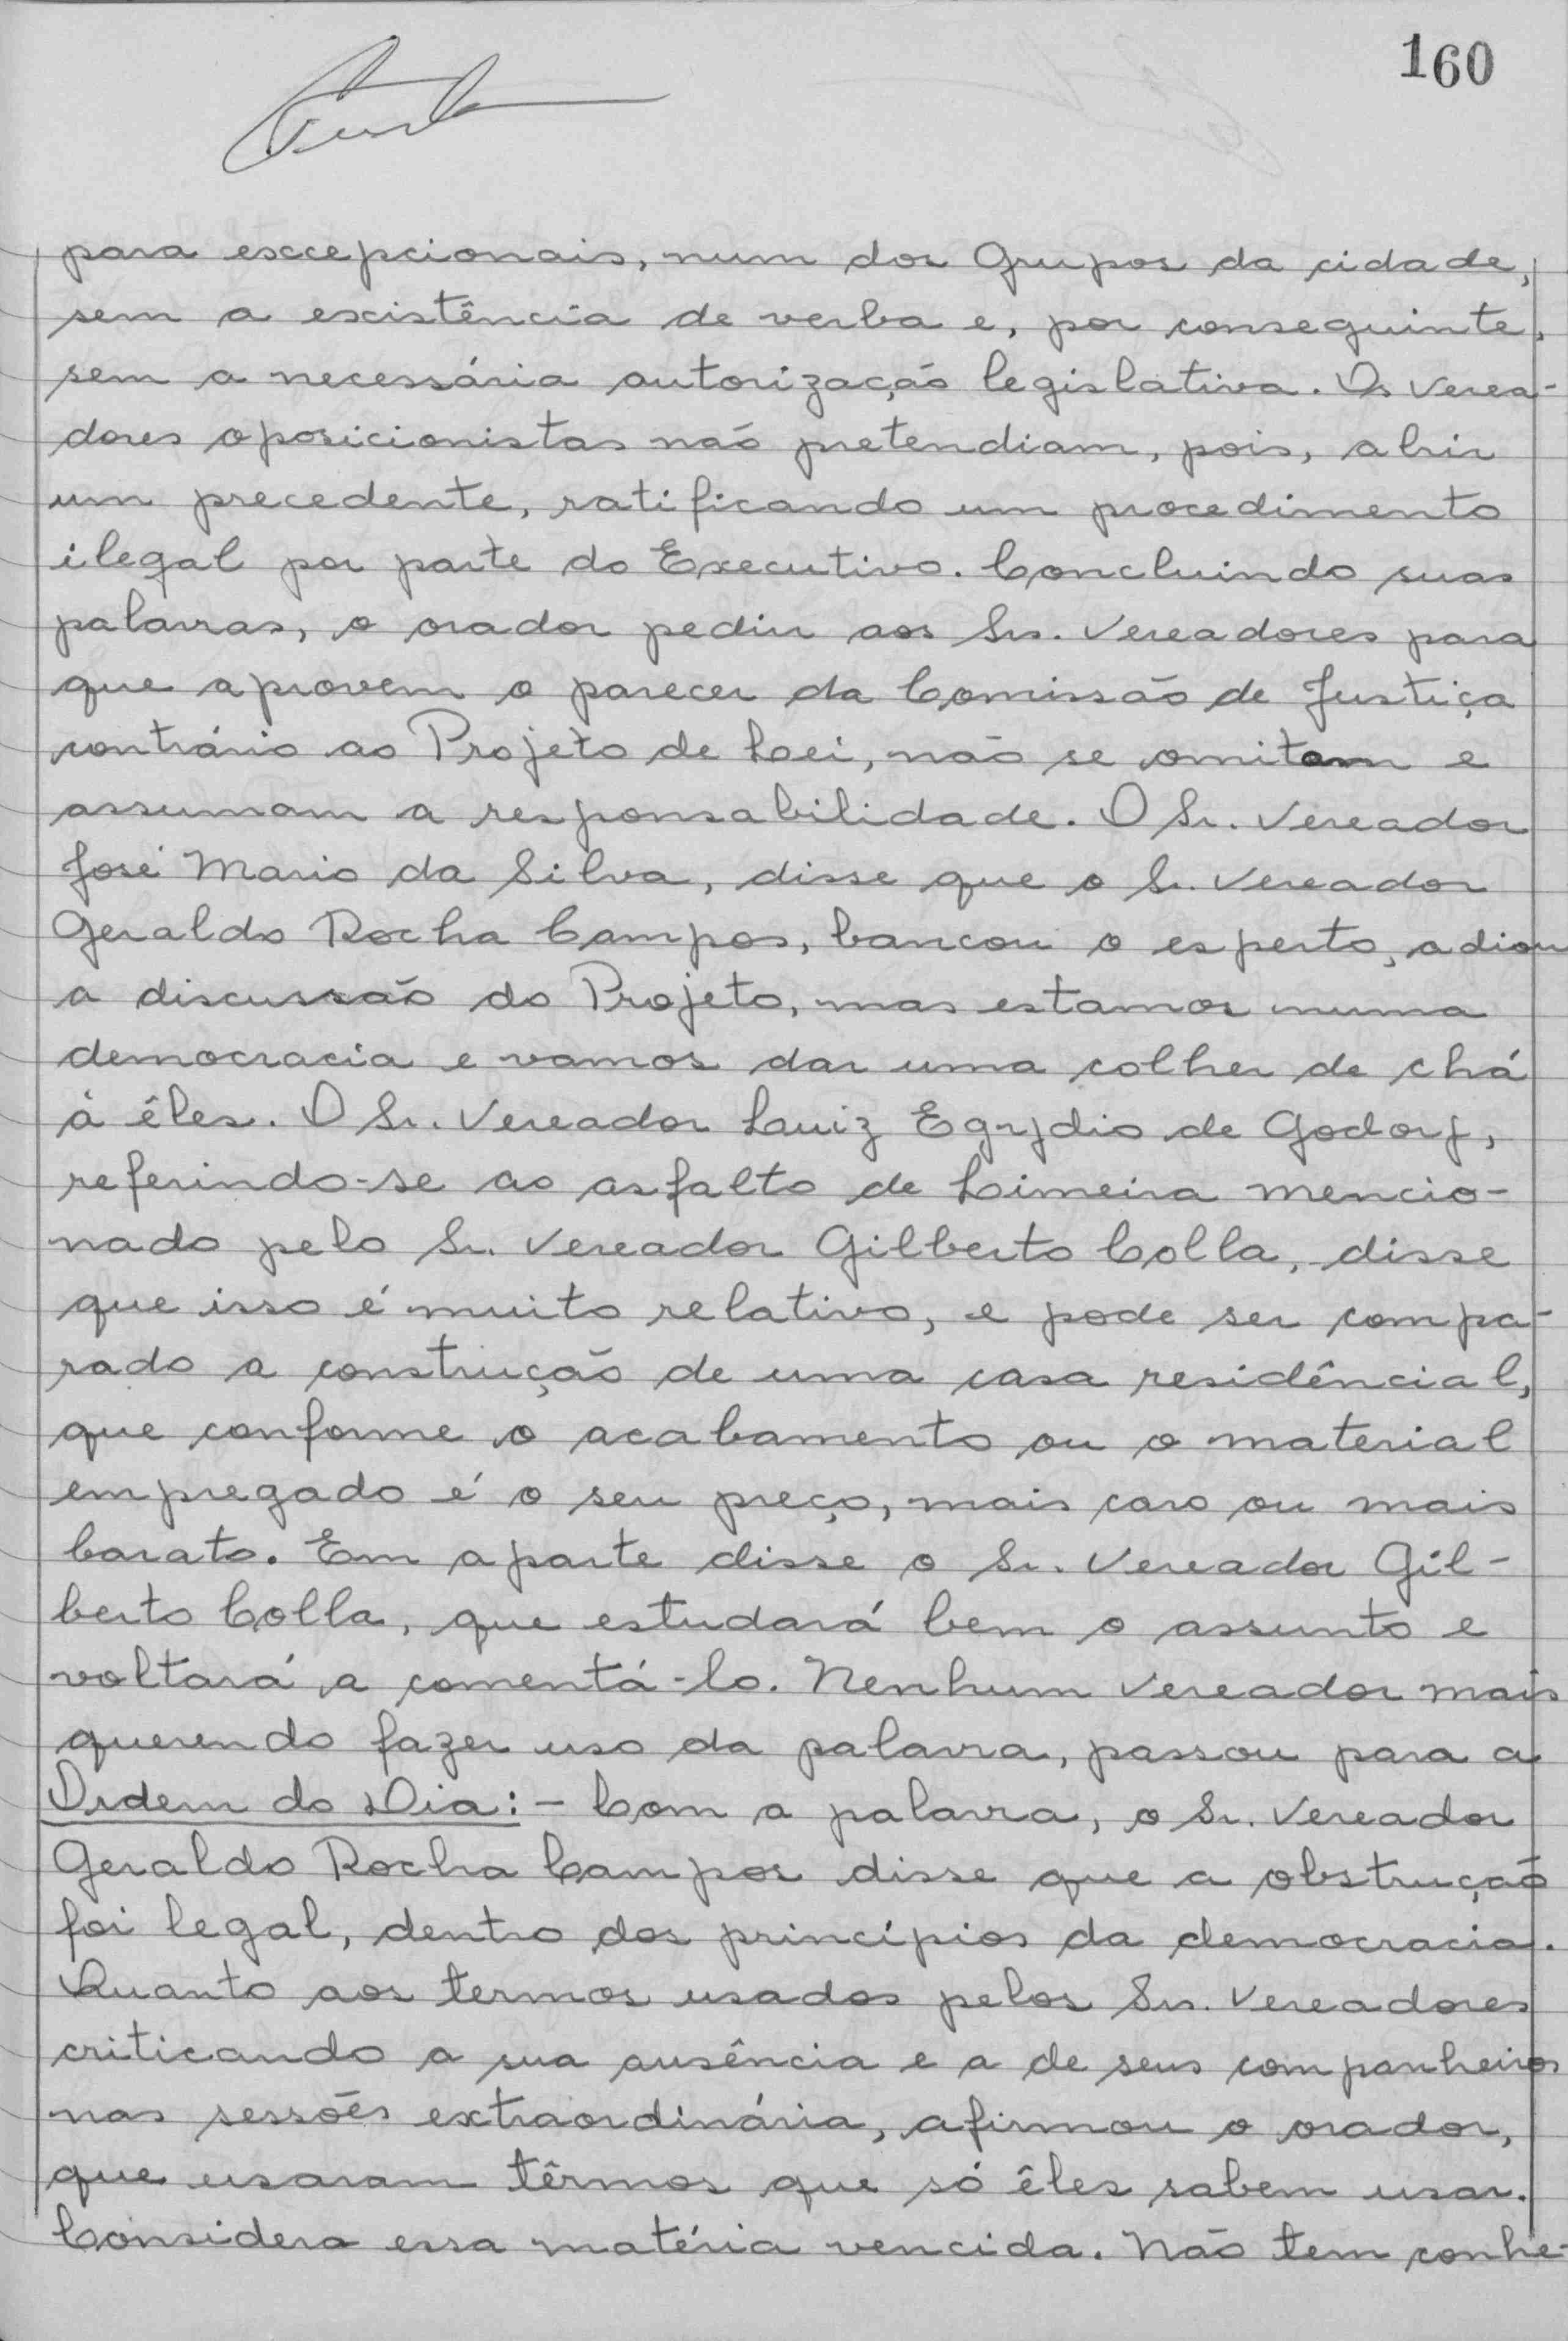 160
para excepcionais, num dos Grupos da cidade,
sem a existência de verba e, por conseguinte,
sem a necessária autorização legislativa. Os Verea-
dores oposicionistas não pretendiam, pois, abrir
um precedente, ratificando um procedimento
ilegal por parte do Executivo. Concluindo suas
palavras, o orador pediu aos Srs. Vereadores para
que aprovem o parecer da Comissão de Justiça
contrário ao Projeto de Lei, não se omitam e
assumam a responsabilidade. O Sr. Vereador
José Mario da Silva, disse que o Sr. Vereador
Geraldo Rocha Campos, bancou o esperto, adiou
a discussão do Projeto, mas estamos numa
democracia e vamos dar uma colher de chá
à êles. O Sr. Vereador Luiz Egydio de Godoy,
referindo-se ao asfalto de Limeira mencio-
nado pelo Sr. Vereador Gilberto Colla, disse
que isso é muito relativo, e pode ser compa-
rado a construção de uma casa residêncial,
que conforme o acabamento ou o material
empregado é o seu preço, mais caro ou mais
barato. Em aparte disse o Sr. Vereador Gil-
berto Colla, que estudará bem o assunto e
voltará a comentá-lo. Nenhum Vereador mais
querendo fazer uso da palavra, passou para a
Ordem do Dia:- Com a palavra, o Sr. Vereador
Geraldo Rocha Campos disse que a obstrução
foi legal, dentro dos princípios da democracia.
Quanto aos termos usados pelos Srs. Vereadores
criticando a sua ausência e a de seus companheiros
nas sessões extraordinária, afirmou o orador,
que usaram têrmos que só êles sabem usar.
Considera essa matéria vencida. Não tem conhe-